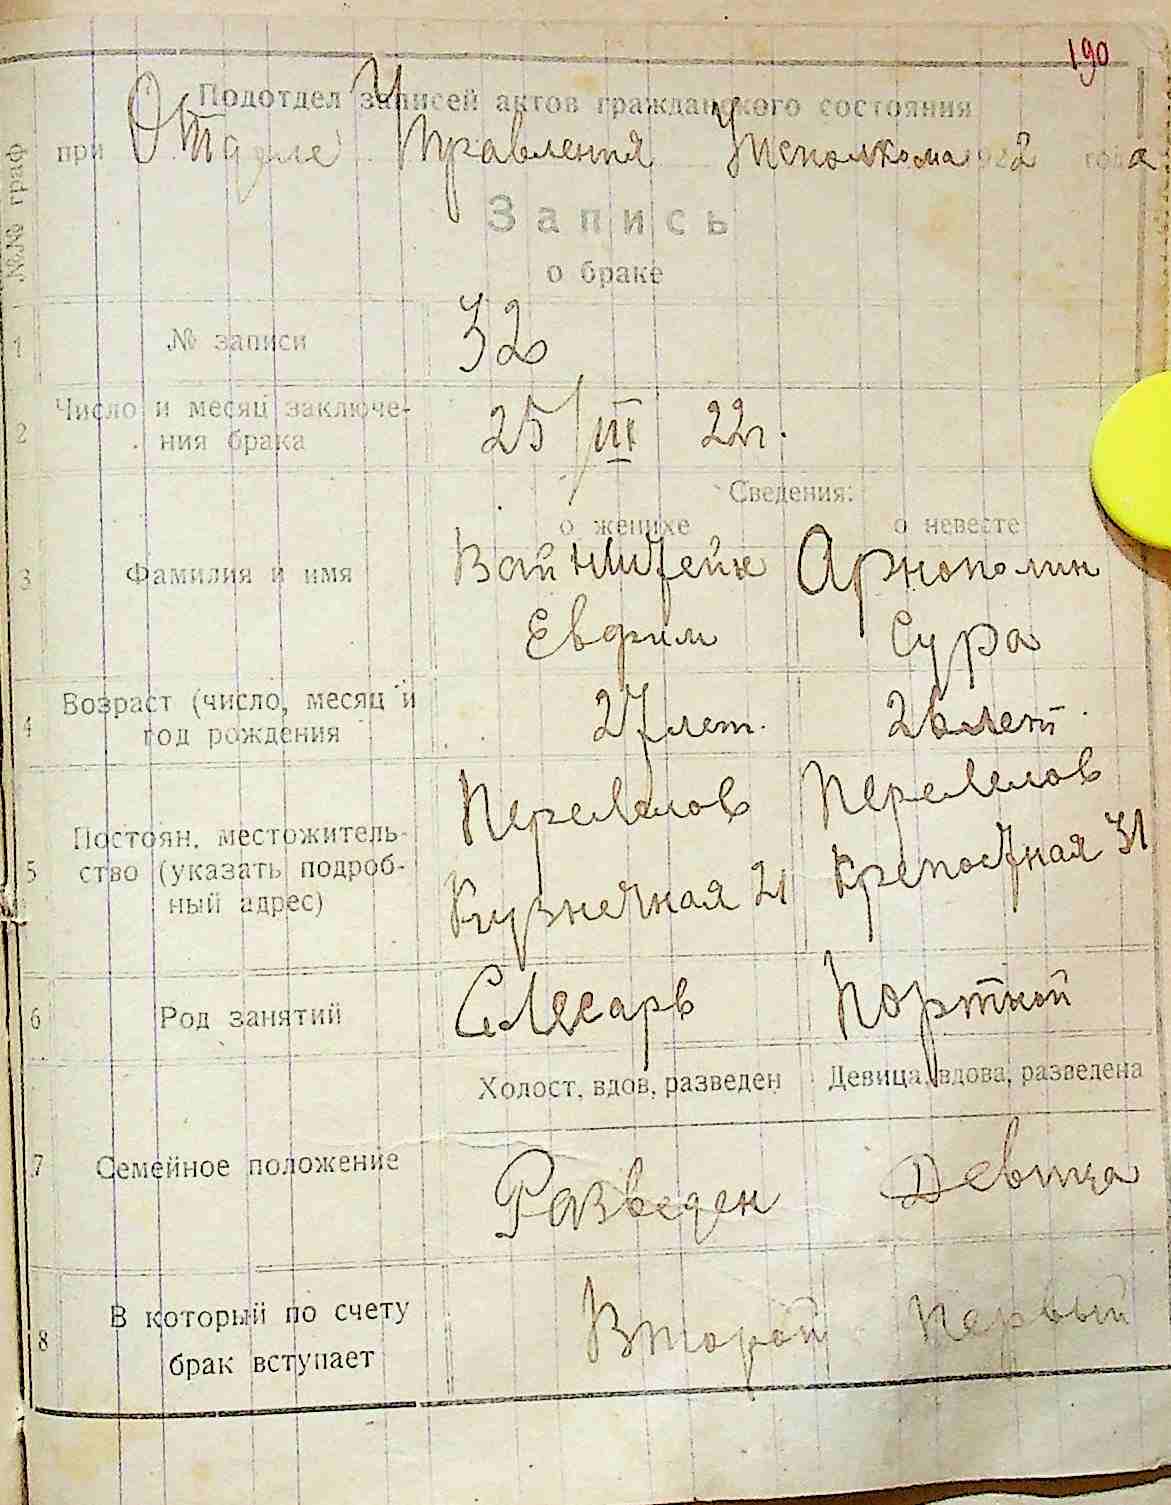 190
Подотдел записей актов гражданского состояния
при Отделе Управления Исполкома 1922 года
№№ граф
Запись
о браке
1 № записи 32
2 Число и месяц заключе-
ния брака 25/III 22 г.
Сведения:
о женихе о невесте
3 Фамилия и имя Вайнштейн Арнополин
Евфим Сура
4 Возраст (число, месяц и
год рождения 27 лет. 26 лет.
Постоян. местожитель-
5 ство (указать подроб-
ный адрес)
Кузнечная 21 Крепостная 31
6 Род занятий Слесарь Портной
Холост, вдов, разведен Девица, вдова, разведена
7 Семейное положение Разведен Девица
8 В который по счету
брак вступает Второй Первый